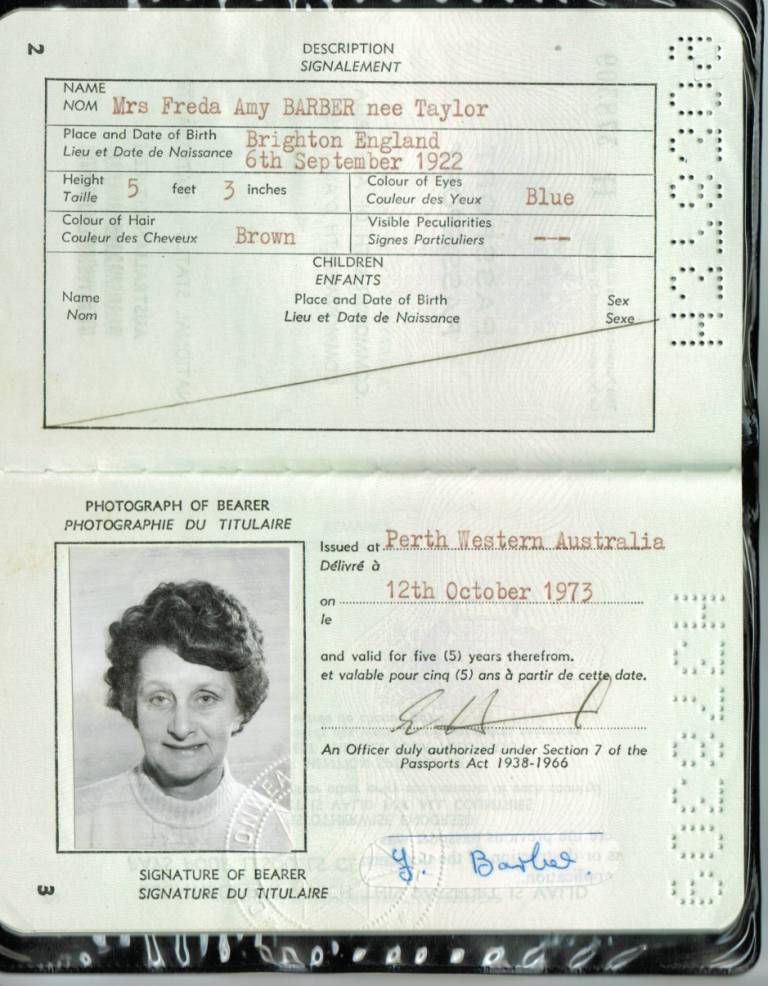 2
DESCRIPTION
SIGNALEMENT
NAME
NOM Mrs Freda Amy BARBER nee Taylor
Place and Date of Birth Brighton England
Lieu et Date de Naissance 6th September 1922
Height
Taille 5 feet 3 inches
Colour of Eyes
Couleur des Yeux Blue
Colour of Hair
Couleur des Cheveux Brown
Visible Peculiarities
Signes Particuliers ---
CHILDREN
ENFANTS
Name Place and Date of Birth Sex
Nom Lieu et Date de Naissance Sexe
PHOTOGRAPH OF BEARER
PHOTOGRAPHIE DU TITULAIRE
Issued at Perth Western Australia
Délivré à
on 12th October 1973
le
and valid for five (5) years therefrom.
et valable pour cinq (5) ans à partir de cette date.
An Officer duly authorized under Section 7 of the
Passports Act 1938-1966
Barber
SIGNATURE OF BEARER
SIGNATURE DU TITULAIRE
3